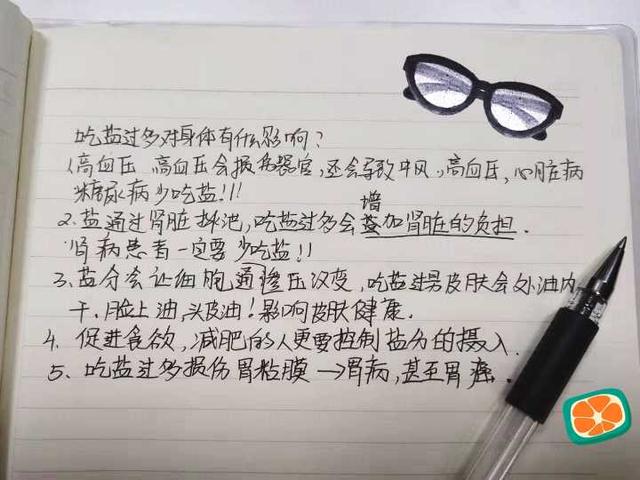 吃盐过多对身体有什么影响?
1、高血压、高血压会损伤器官,还会导致中风,高血压,心脏病
糖尿病少吃盐!!!
增
2.盐通过肾脏排泄,吃盐过多会加肾脏的负担.
肾病患者一定要少吃盐!!
3、盐分会让细胞通渗压改变,吃盐过多皮肤会外油内
干,脸上油,头皮油!影响皮肤健康.
4. 促进食欲,减肥的人更要控制盐分的摄入.
5、吃盐过多损伤胃粘膜→胃病,甚至胃癌.